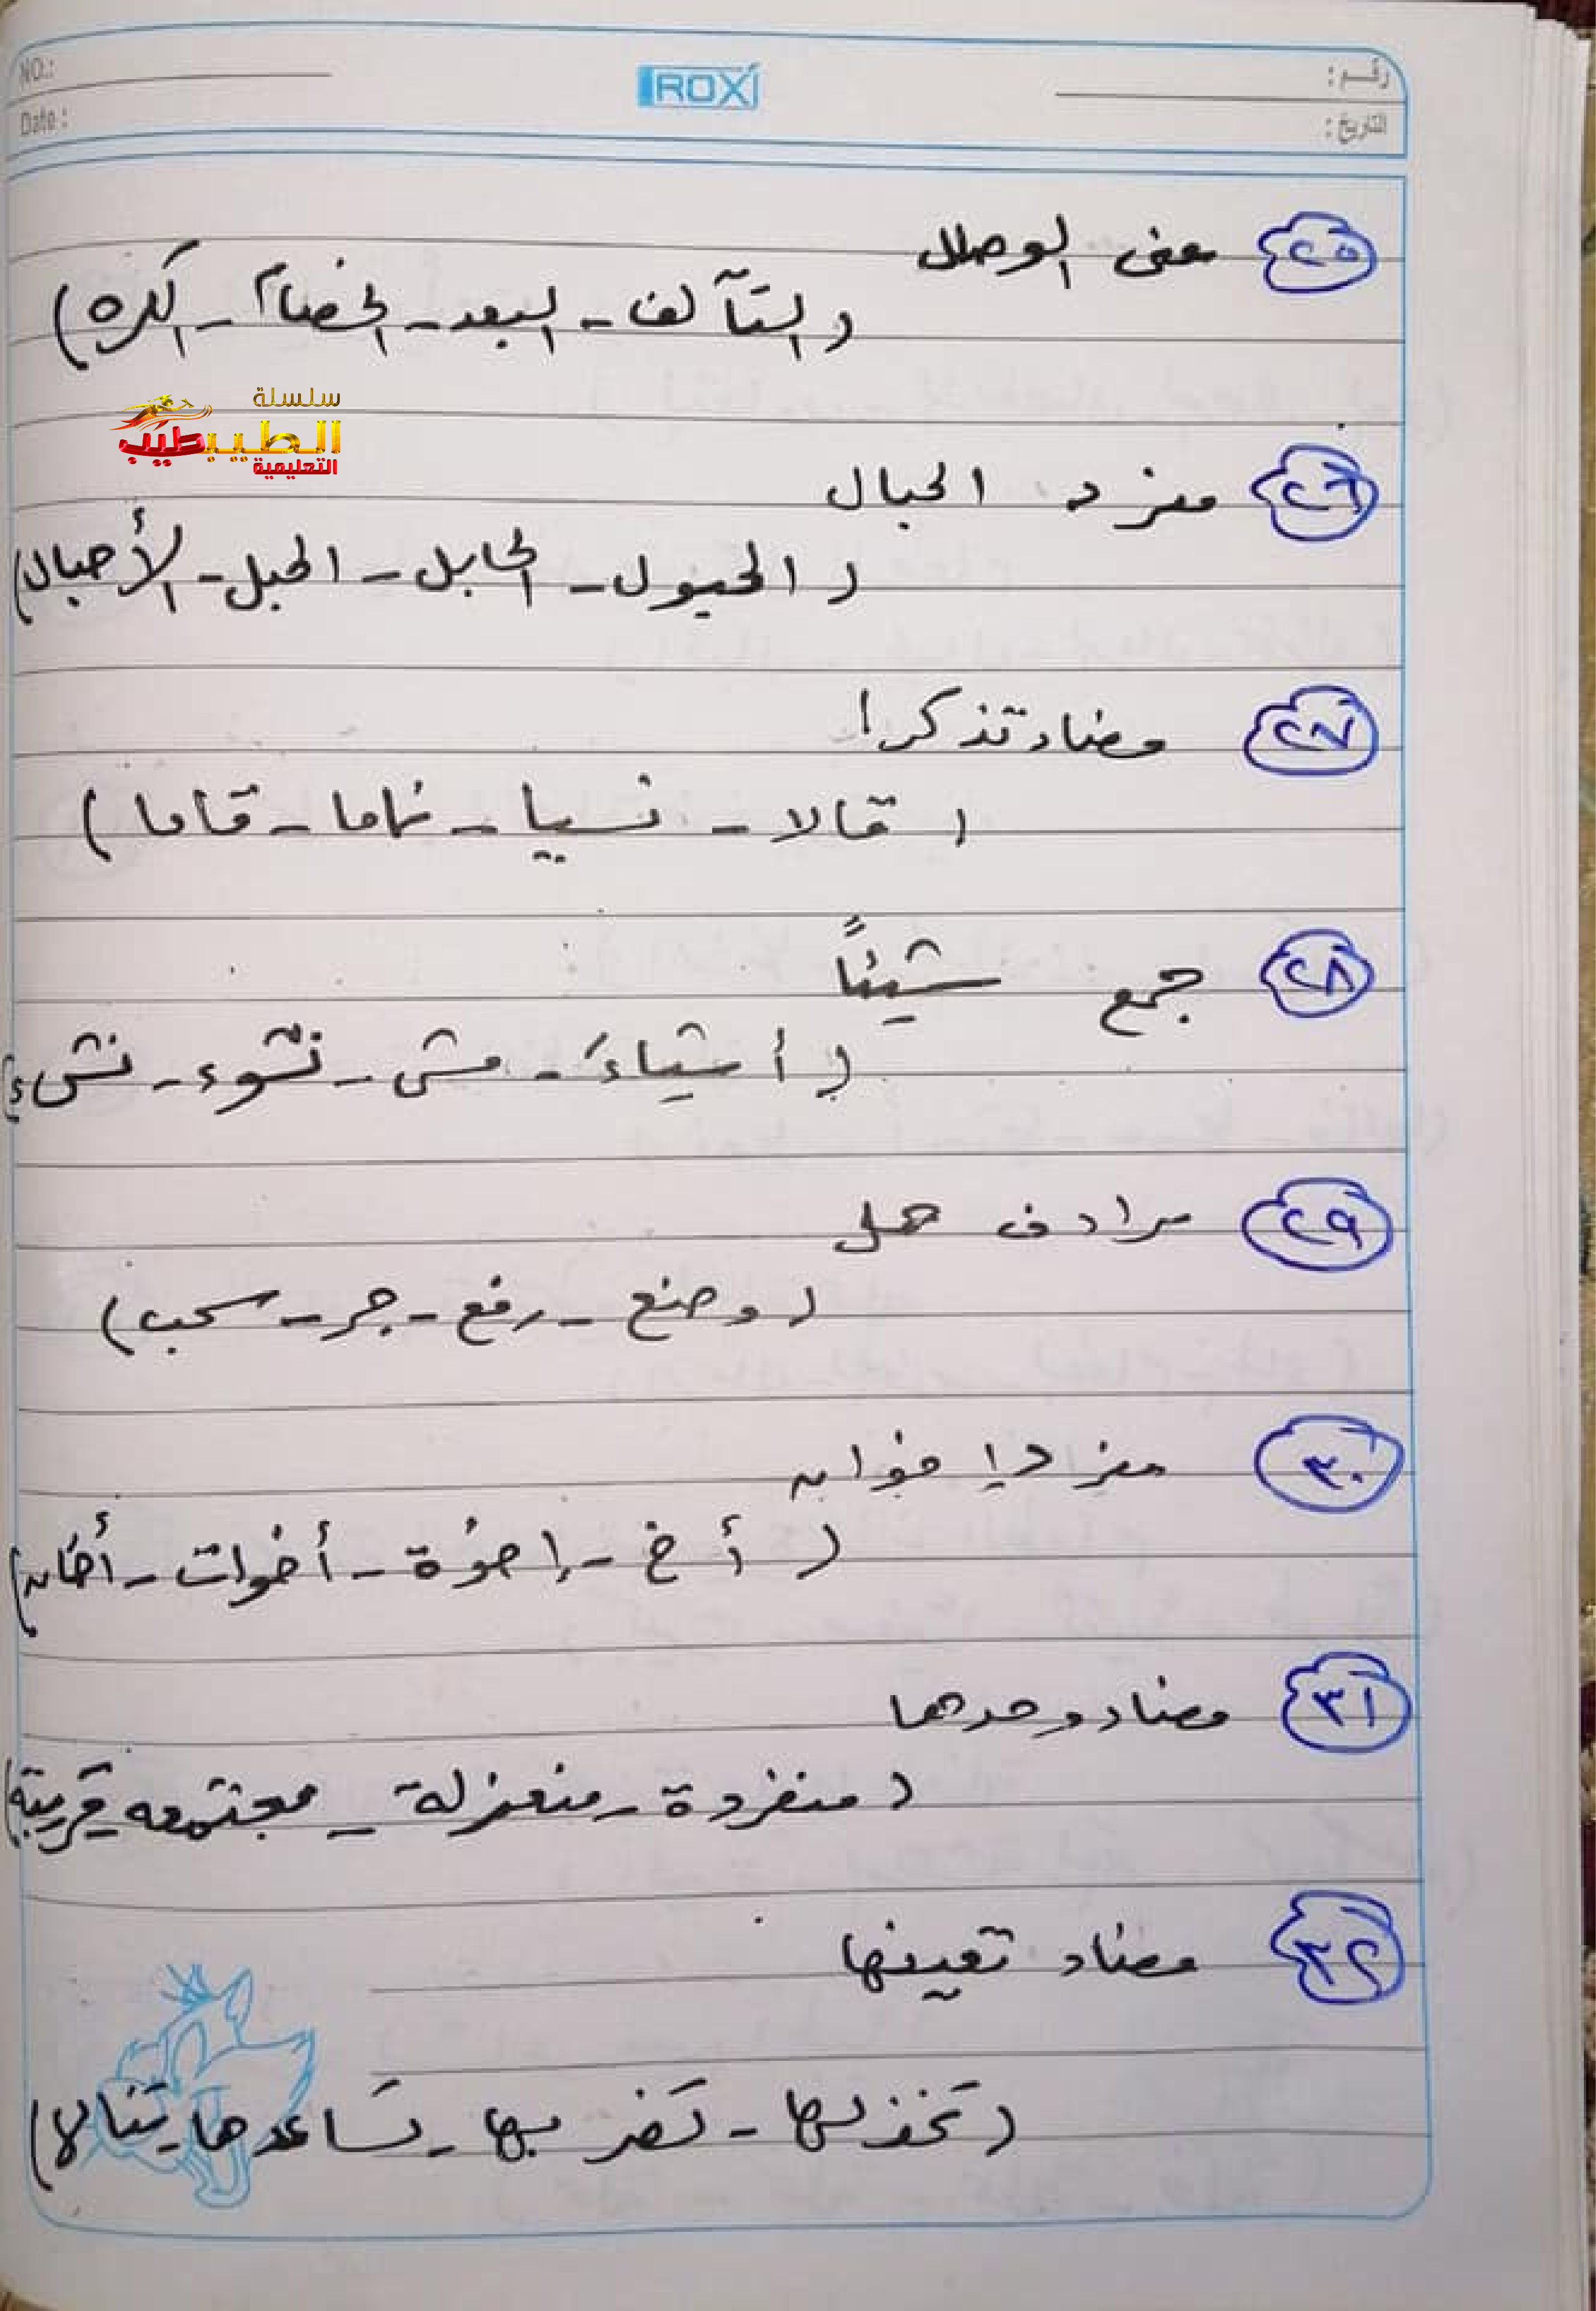 NO.:
ROXI
رقم:
Date:
التاريخ:
٢٥ معنى الوصال
(التآلف - البعد - الخصام - الكره)
سلسلة
الطيب طيب
التعليمية
٢٦ مفرد الحبال
(الحبول - الحابل - الحبل - الأحبال)
٢٧ مضاد تذكرا
(قالا - نسيا - ناما - قاما)
٢٨ جمع شيئاً
(أشياء - مشى - نشوء - نشىء)
٢٩ مرادف حمل
(وضع - رفع - جر - سحب)
٣٠ مفرد إخوان
(أخ - إخوة - أخوات - أخان)
٣١ مضاد وحدها
(منفردة - منعزلة - مجتمعه - قريبة)
٣٢ مضاد تعينها
(تخذلها - تضربها - تساعدها - تنالها)